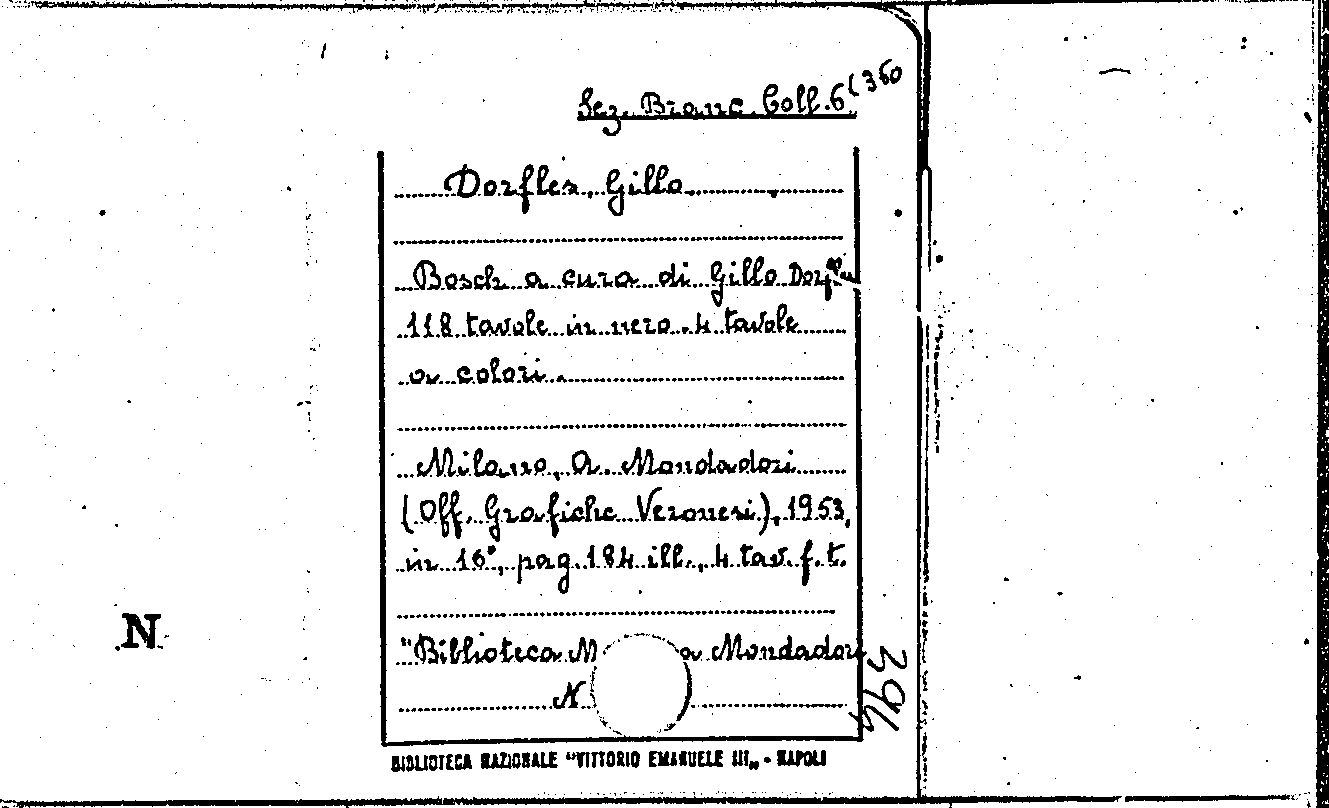 Sez. Branc. Coll. 6 (360
Dorfles, Gillo
Bosch a cura di Gillo Dorfles
118 tavole in nero. 4 tavole
a colori.
Milano, A. Mondadori
(Off. Grafiche Veronesi), 1953,
in 16°, pag. 184 ill., 4 tav. f. t.
"Biblioteca M a Mondadori
N
N
BIBLIOTECA NAZIONALE "VITTORIO EMANUELE III„ - NAPOLI